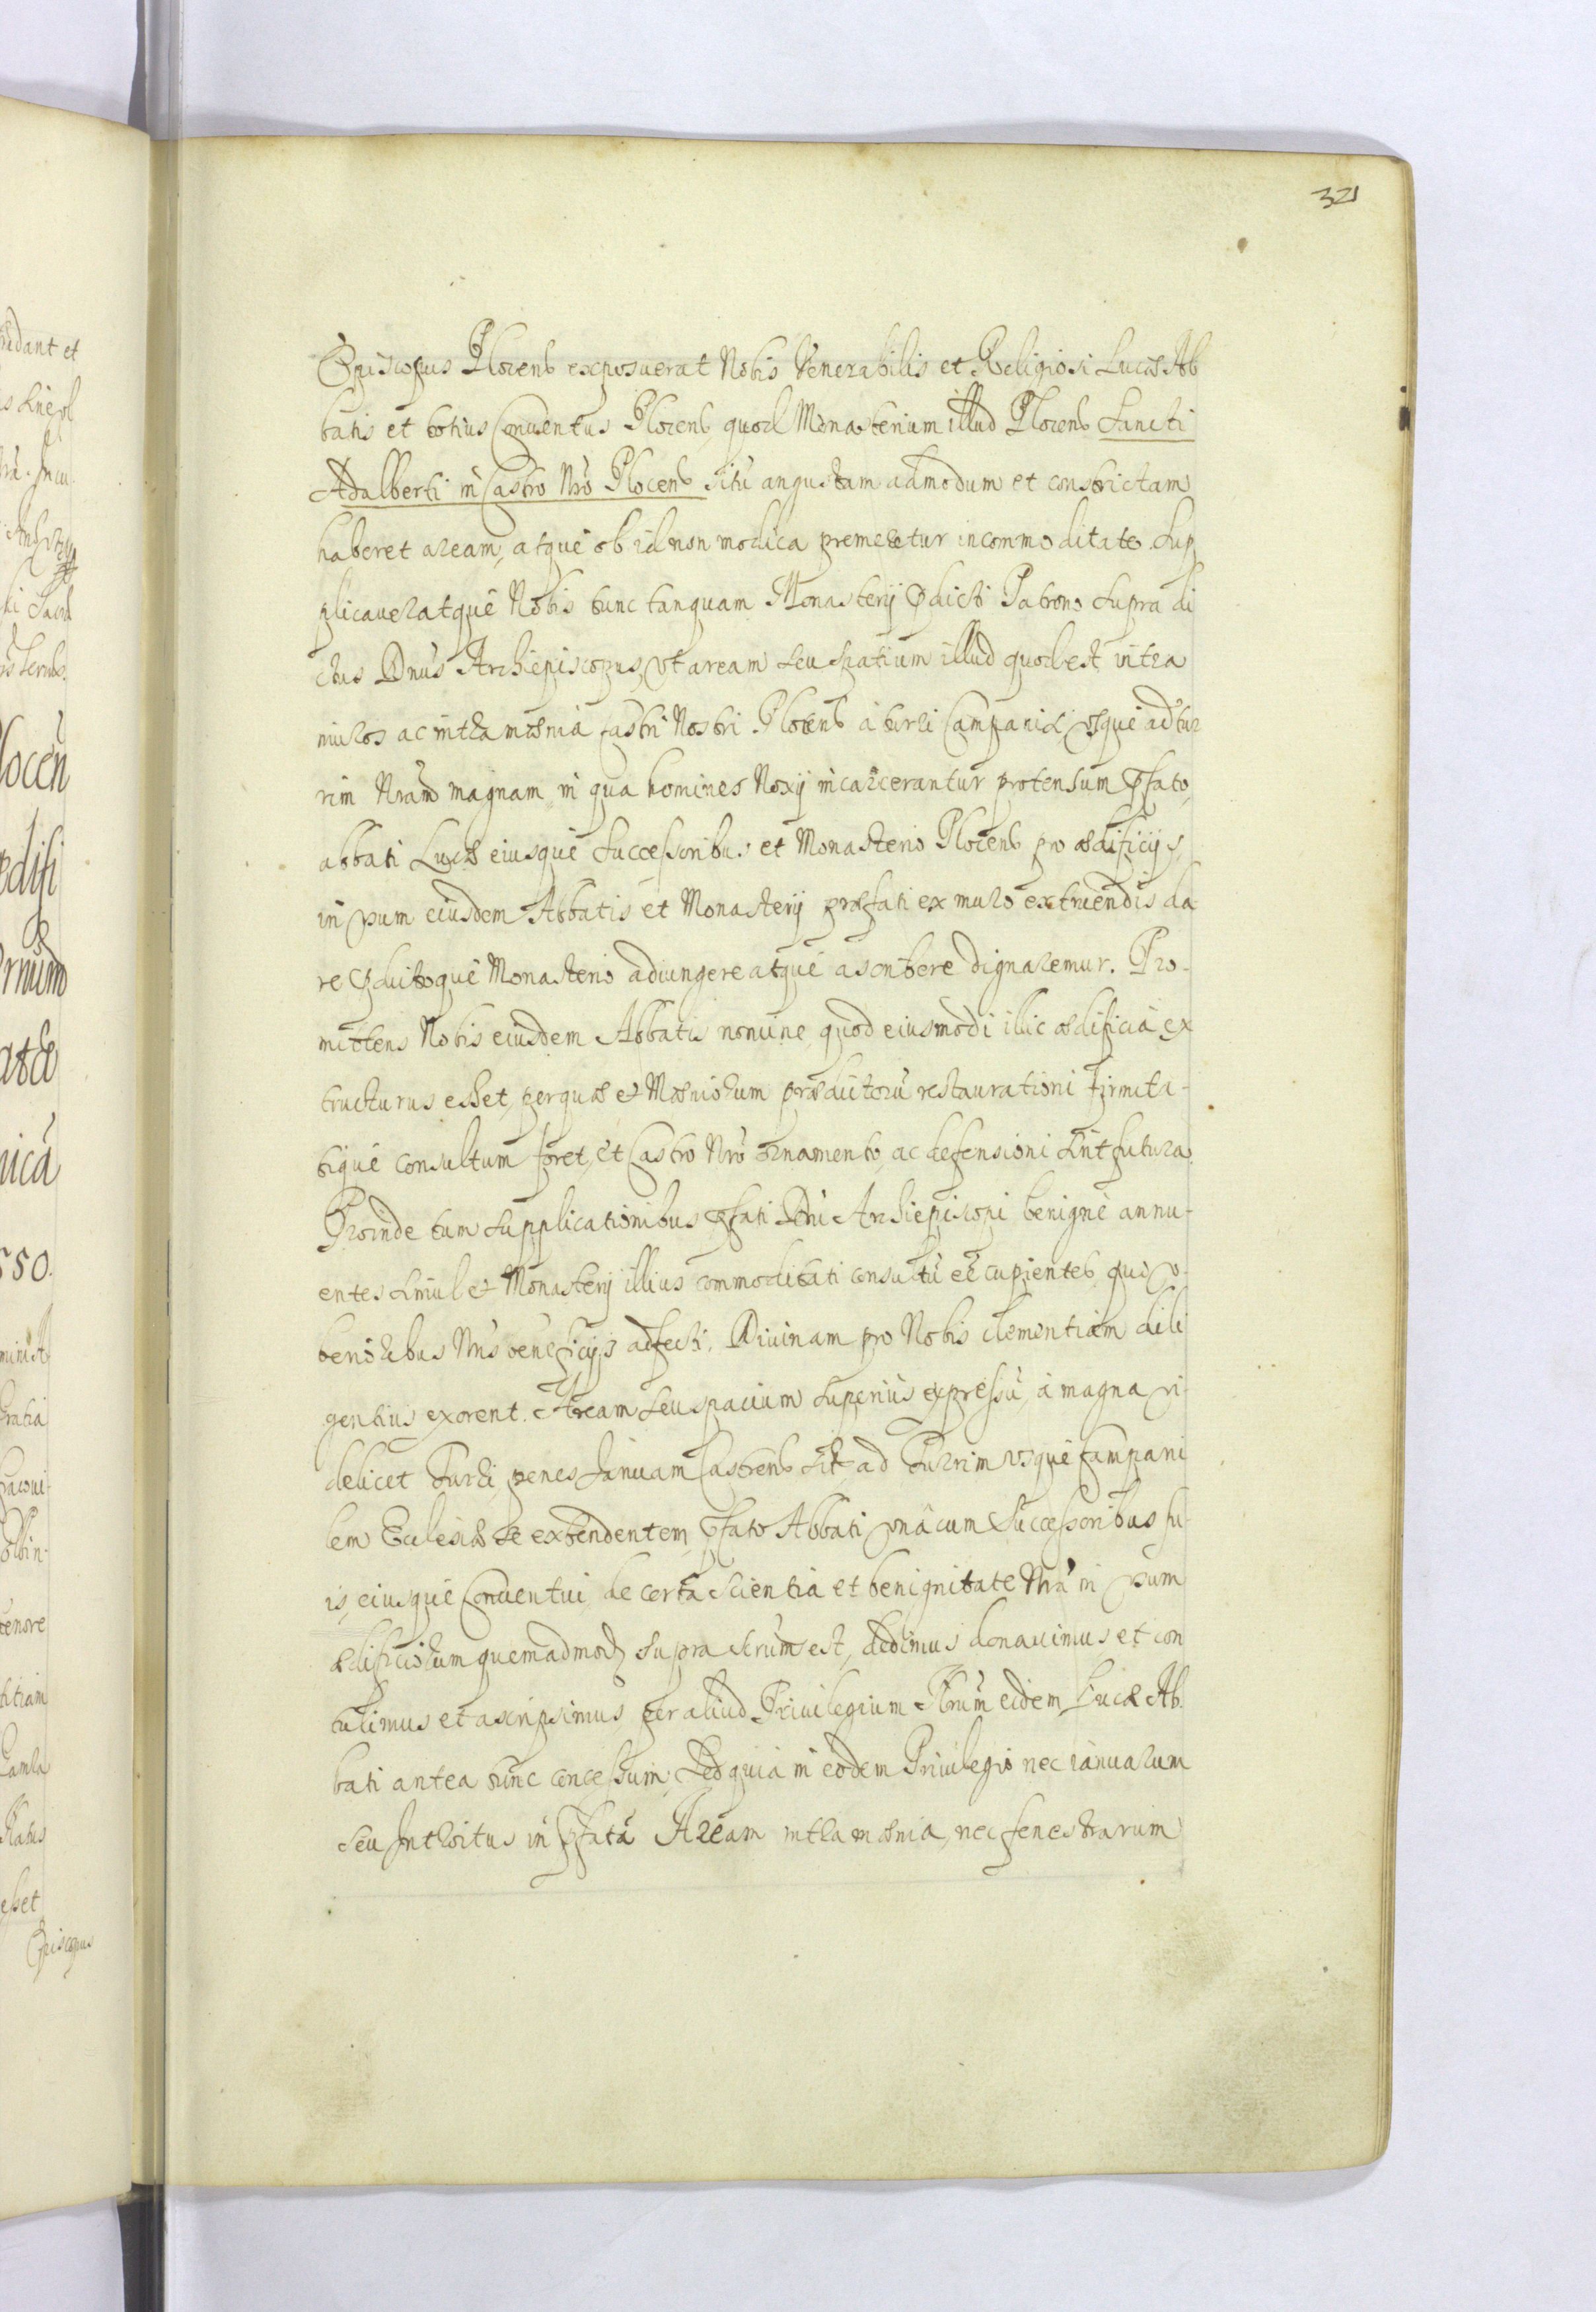 321
Episcopus Plocens exposuerat Nobis Venerabilis et Religiosi Lucæ Ab
batis et totius Conventus Plocens, quod Monasterium illud Plocens Sancti
Adalberti in Castro Nro Plocens situ angustam admodum et constrictam
haberet aream, atque ob id non modica premeretur incommoditate. Sup
plicaueratque Nobis tunc tanquam Monasterij pdicti Patrono supra di
ctus Dnus Archiepiscopus, vt aream seu spatium illud quod est intra
muros ac intra mœnia Castri Nostri Plocens à turri Campanili, vsque ad tur
rim Nram magnam, in qua homines Noxij incarcerantur protensum pfato
abbati Lucæ eiusque Successoribus et Monasterio Plocens pro ædificijs
in vsum eiusdem Abbatis et Monasterij præfati ex muro extruendis da
re pdictoque Monasterio adiungere atque ascribere dignaremur. Pro-
mittens Nobis eiusdem Abbatis nomine, quod eiusmodi illic ædificia ex
tructurus esset, per quæ et Mœniorum prædictorū restaurationi firmita-
tique consultum foret, et Castro Nro ornamento, ac defensioni sint futura.
Proinde tum supplicationibus pfati Dni Archiepiscopi benigne annu-
entes simul et Monasterij illius commoditati consultū eē cupientes, quo v-
berioribus Nris beneficijs adfecti, Diuinam pro Nobis clementiam dili
gentius exorent. Aream seu spacium superius expressū, à magna vi-
delicet Turri, penes Januam Castrens sit, ad Turrim vsque Campani
lem Eclesiæ se extendentem, pfato Abbati vnâ cum Successoribus su-
is, eiusque Conventui, de certa scientia et benignitate Nrà in vsum
ædificiorum quemadmodū supra scrūm est, dedimus donauimus et con
tulimus et ascripsimus per aliud Priuilegium Nrum eidem Lucæ Ab
bati antea tunc concessum, Sed quia in eodem Priuilegio nec ianuarum
seu Introitus in pfatā Aream intra mœnia, nec fenestrarum